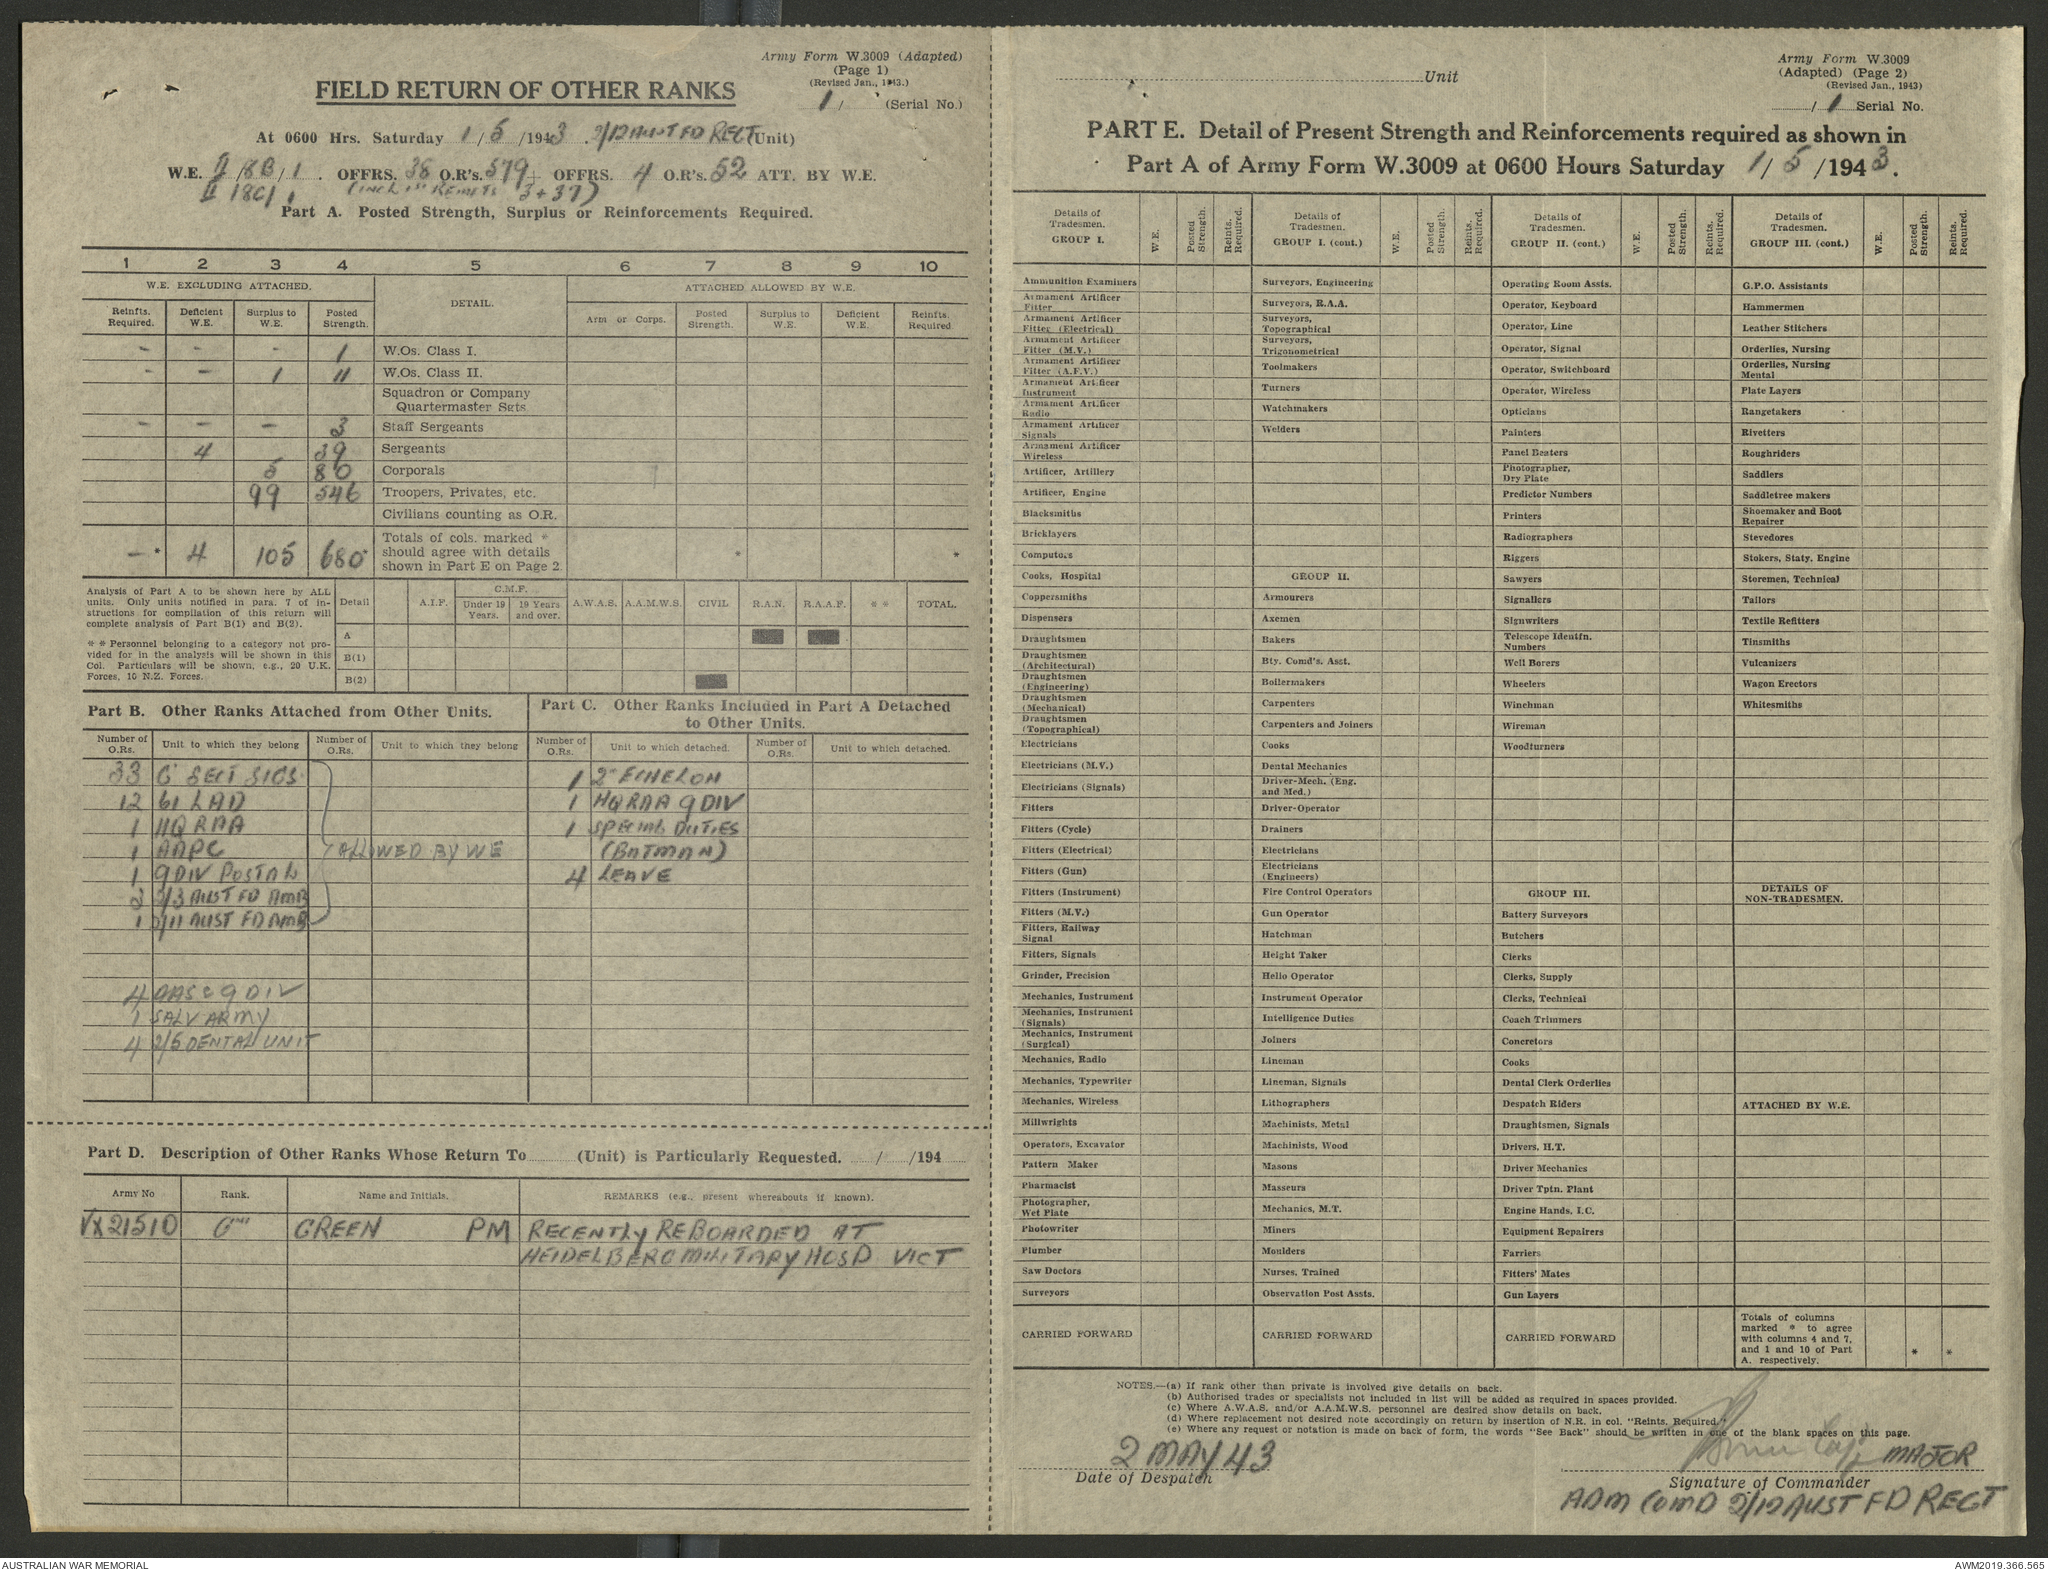 Army Form W.3009 (Adapted)
(Page 1)
(Revised Jan., 1943.)
1/ (Serial No.)
FIELD RETURN OF OTHER RANKS
At 0600 Hrs. Saturday 1/5/1943. 2/12 AUST FD REGT (Unit)
W.E. II/8B/1. OFFRS. 38 O.R's. 579 + OFFRS. 4 O.R's. 52 ATT. BY W.E.
II 18C/1 (INCL 1st REINFTS 3+37)
Part A. Posted Strength, Surplus or Reinforcements Required.
1 2 3 4 5 6 7 8 9 10
W.E. EXCLUDING ATTACHED. DETAIL. ATTACHED ALLOWED BY W.E.
Reinfts. Required. Deficient W.E. Surplus to W.E. Posted Strength. Arm or Corps. Posted Strength. Surplus to W.E. Deficient W.E. Reinfts. Required
- - - 1 W.Os. Class I.
- - 1 11 W.Os. Class II.
Squadron or Company Quartermaster Sgts.
- - - 3 Staff Sergeants
4 39 Sergeants
5 80 Corporals
99 546 Troopers, Privates, etc.
Civilians counting as O.R.
-* 4 105 680* Totals of cols. marked * should agree with details shown in Part E on Page 2. * *
Analysis of Part A to be shown here by ALL units. Only units notified in para. 7 of instructions for compilation of this return will complete analysis of Part B(1) and B(2).
* * Personnel belonging to a category not provided for in the analysis will be shown in this Col. Particulars will be shown, e.g., 20 U.K. Forces, 10 N.Z. Forces.
Detail A.I.F. C.M.F. Under 19 Years. 19 Years and over. A.W.A.S. A.A.M.W.S. CIVIL R.A.N. R.A.A.F. * * TOTAL.
A
B(1)
B(2)
Part B. Other Ranks Attached from Other Units.
Number of O.Rs. Unit to which they belong Number of O.Rs. Unit to which they belong
33 G SECT SIGS
12 61 LAD
1 HQ RAA
1 AAPC
ALLOWED BY WE
1 9 DIV POSTAL
3 2/3 AUST FD AMB
1 2/11 AUST FD AMB
4 AASC 9 DIV
1 SALV ARMY
4 2/5 DENTAL UNIT
Part C. Other Ranks Included in Part A Detached to Other Units.
Number of O.Rs. Unit to which detached. Number of O.Rs. Unit to which detached.
1 2nd ECHELON
1 HQ RAA 9 DIV
1 SPECIAL DUTIES
(BATMAN)
4 LEAVE
Part D. Description of Other Ranks Whose Return To (Unit) is Particularly Requested. / /194
Army No Rank. Name and Initials. REMARKS (e.g., present whereabouts if known).
VX21510 Gnr GREEN PM RECENTLY REBOARDED AT
HEIDELBERG MILITARY HOSP VICT
Unit
Army Form W.3009
(Adapted) (Page 2)
(Revised Jan., 1943)
/1 Serial No.
PART E. Detail of Present Strength and Reinforcements required as shown in
Part A of Army Form W.3009 at 0600 Hours Saturday 1/5/1943.
Details of Tradesmen. GROUP I. W.E. Posted Strength. Reints. Required.
Ammunition Examiners
Armament Artificer Fitter
Armament Artificer Fitter (Electrical)
Armament Artificer Fitter (M.V.)
Armament Artificer Fitter (A.F.V.)
Armament Artificer Instrument
Armament Artificer Radio
Armament Artificer Signals
Armament Artificer Wireless
Artificer, Artillery
Artificer, Engine
Blacksmiths
Bricklayers
Computors
Cooks, Hospital
Coppersmiths
Dispensers
Draughtsmen
Draughtsmen (Architectural)
Draughtsmen (Engineering)
Draughtsmen (Mechanical)
Draughtsmen (Topographical)
Electricians
Electricians (M.V.)
Electricians (Signals)
Fitters
Fitters (Cycle)
Fitters (Electrical)
Fitters (Gun)
Fitters (Instrument)
Fitters (M.V.)
Fitters, Railway Signal
Fitters, Signals
Grinder, Precision
Mechanics, Instrument
Mechanics, Instrument (Signals)
Mechanics, Instrument (Surgical)
Mechanics, Radio
Mechanics, Typewriter
Mechanics, Wireless
Millwrights
Operators, Excavator
Pattern Maker
Pharmacist
Photographer, Wet Plate
Photowriter
Plumber
Saw Doctors
Surveyors
CARRIED FORWARD
Details of Tradesmen. GROUP I. (cont.) W.E. Posted Strength. Reints. Required.
Surveyors, Engineering
Surveyors, R.A.A.
Surveyors, Topographical
Surveyors, Trigonometrical
Toolmakers
Turners
Watchmakers
Welders
GROUP II.
Armourers
Axemen
Bakers
Bty. Comd's. Asst.
Boilermakers
Carpenters
Carpenters and Joiners
Cooks
Dental Mechanics
Driver-Mech. (Eng. and Med.)
Driver-Operator
Drainers
Electricians
Electricians (Engineers)
Fire Control Operators
Gun Operator
Hatchman
Height Taker
Hello Operator
Instrument Operator
Intelligence Duties
Joiners
Lineman
Lineman, Signals
Lithographers
Machinists, Metal
Machinists, Wood
Masons
Masseurs
Mechanics, M.T.
Miners
Moulders
Nurses, Trained
Observation Post Assts.
CARRIED FORWARD
Details of Tradesmen. GROUP II. (cont.) W.E. Posted Strength. Reints. Required.
Operating Room Assts.
Operator, Keyboard
Operator, Line
Operator, Signal
Operator, Switchboard
Operator, Wireless
Opticians
Painters
Panel Beaters
Photographer, Dry Plate
Predictor Numbers
Printers
Radiographers
Riggers
Sawyers
Signallers
Signwriters
Telescope Identfn. Numbers
Well Borers
Wheelers
Winchman
Wireman
Woodturners
GROUP III.
Battery Surveyors
Butchers
Clerks
Clerks, Supply
Clerks, Technical
Coach Trimmers
Concretors
Cooks
Dental Clerk Orderlies
Despatch Riders
Draughtsmen, Signals
Drivers, H.T.
Driver Mechanics
Driver Tptn. Plant
Engine Hands, I.C.
Equipment Repairers
Farriers
Fitters' Mates
Gun Layers
CARRIED FORWARD
Details of Tradesmen. GROUP III. (cont.) W.E. Posted Strength. Reints. Required.
G.P.O. Assistants
Hammermen
Leather Stitchers
Orderlies, Nursing
Orderlies, Nursing Mental
Plate Layers
Rangetakers
Rivetters
Roughriders
Saddlers
Saddletree makers
Shoemaker and Boot Repairer
Stevedores
Stokers, Staty. Engine
Storemen, Technical
Tailors
Textile Refitters
Tinsmiths
Vulcanizers
Wagon Erectors
Whitesmiths
DETAILS OF NON-TRADESMEN.
ATTACHED BY W.E.
Totals of columns marked * to agree with columns 4 and 7, and 1 and 10 of Part A. respectively. * *
NOTES.—(a) If rank other than private is involved give details on back.
(b) Authorised trades or specialists not included in list will be added as required in spaces provided.
(c) Where A.W.A.S. and/or A.A.M.W.S. personnel are desired show details on back.
(d) Where replacement not desired note accordingly on return by insertion of N.R. in col. "Reints. Required."
(e) Where any request or notation is made on back of form, the words "See Back" should be written in one of the blank spaces on this page.
2 MAY 43
Date of Despatch
MAJOR
Signature of Commander
ADM COMD 2/12 AUST FD REGT
AUSTRALIAN WAR MEMORIAL
AWM2019.366.565